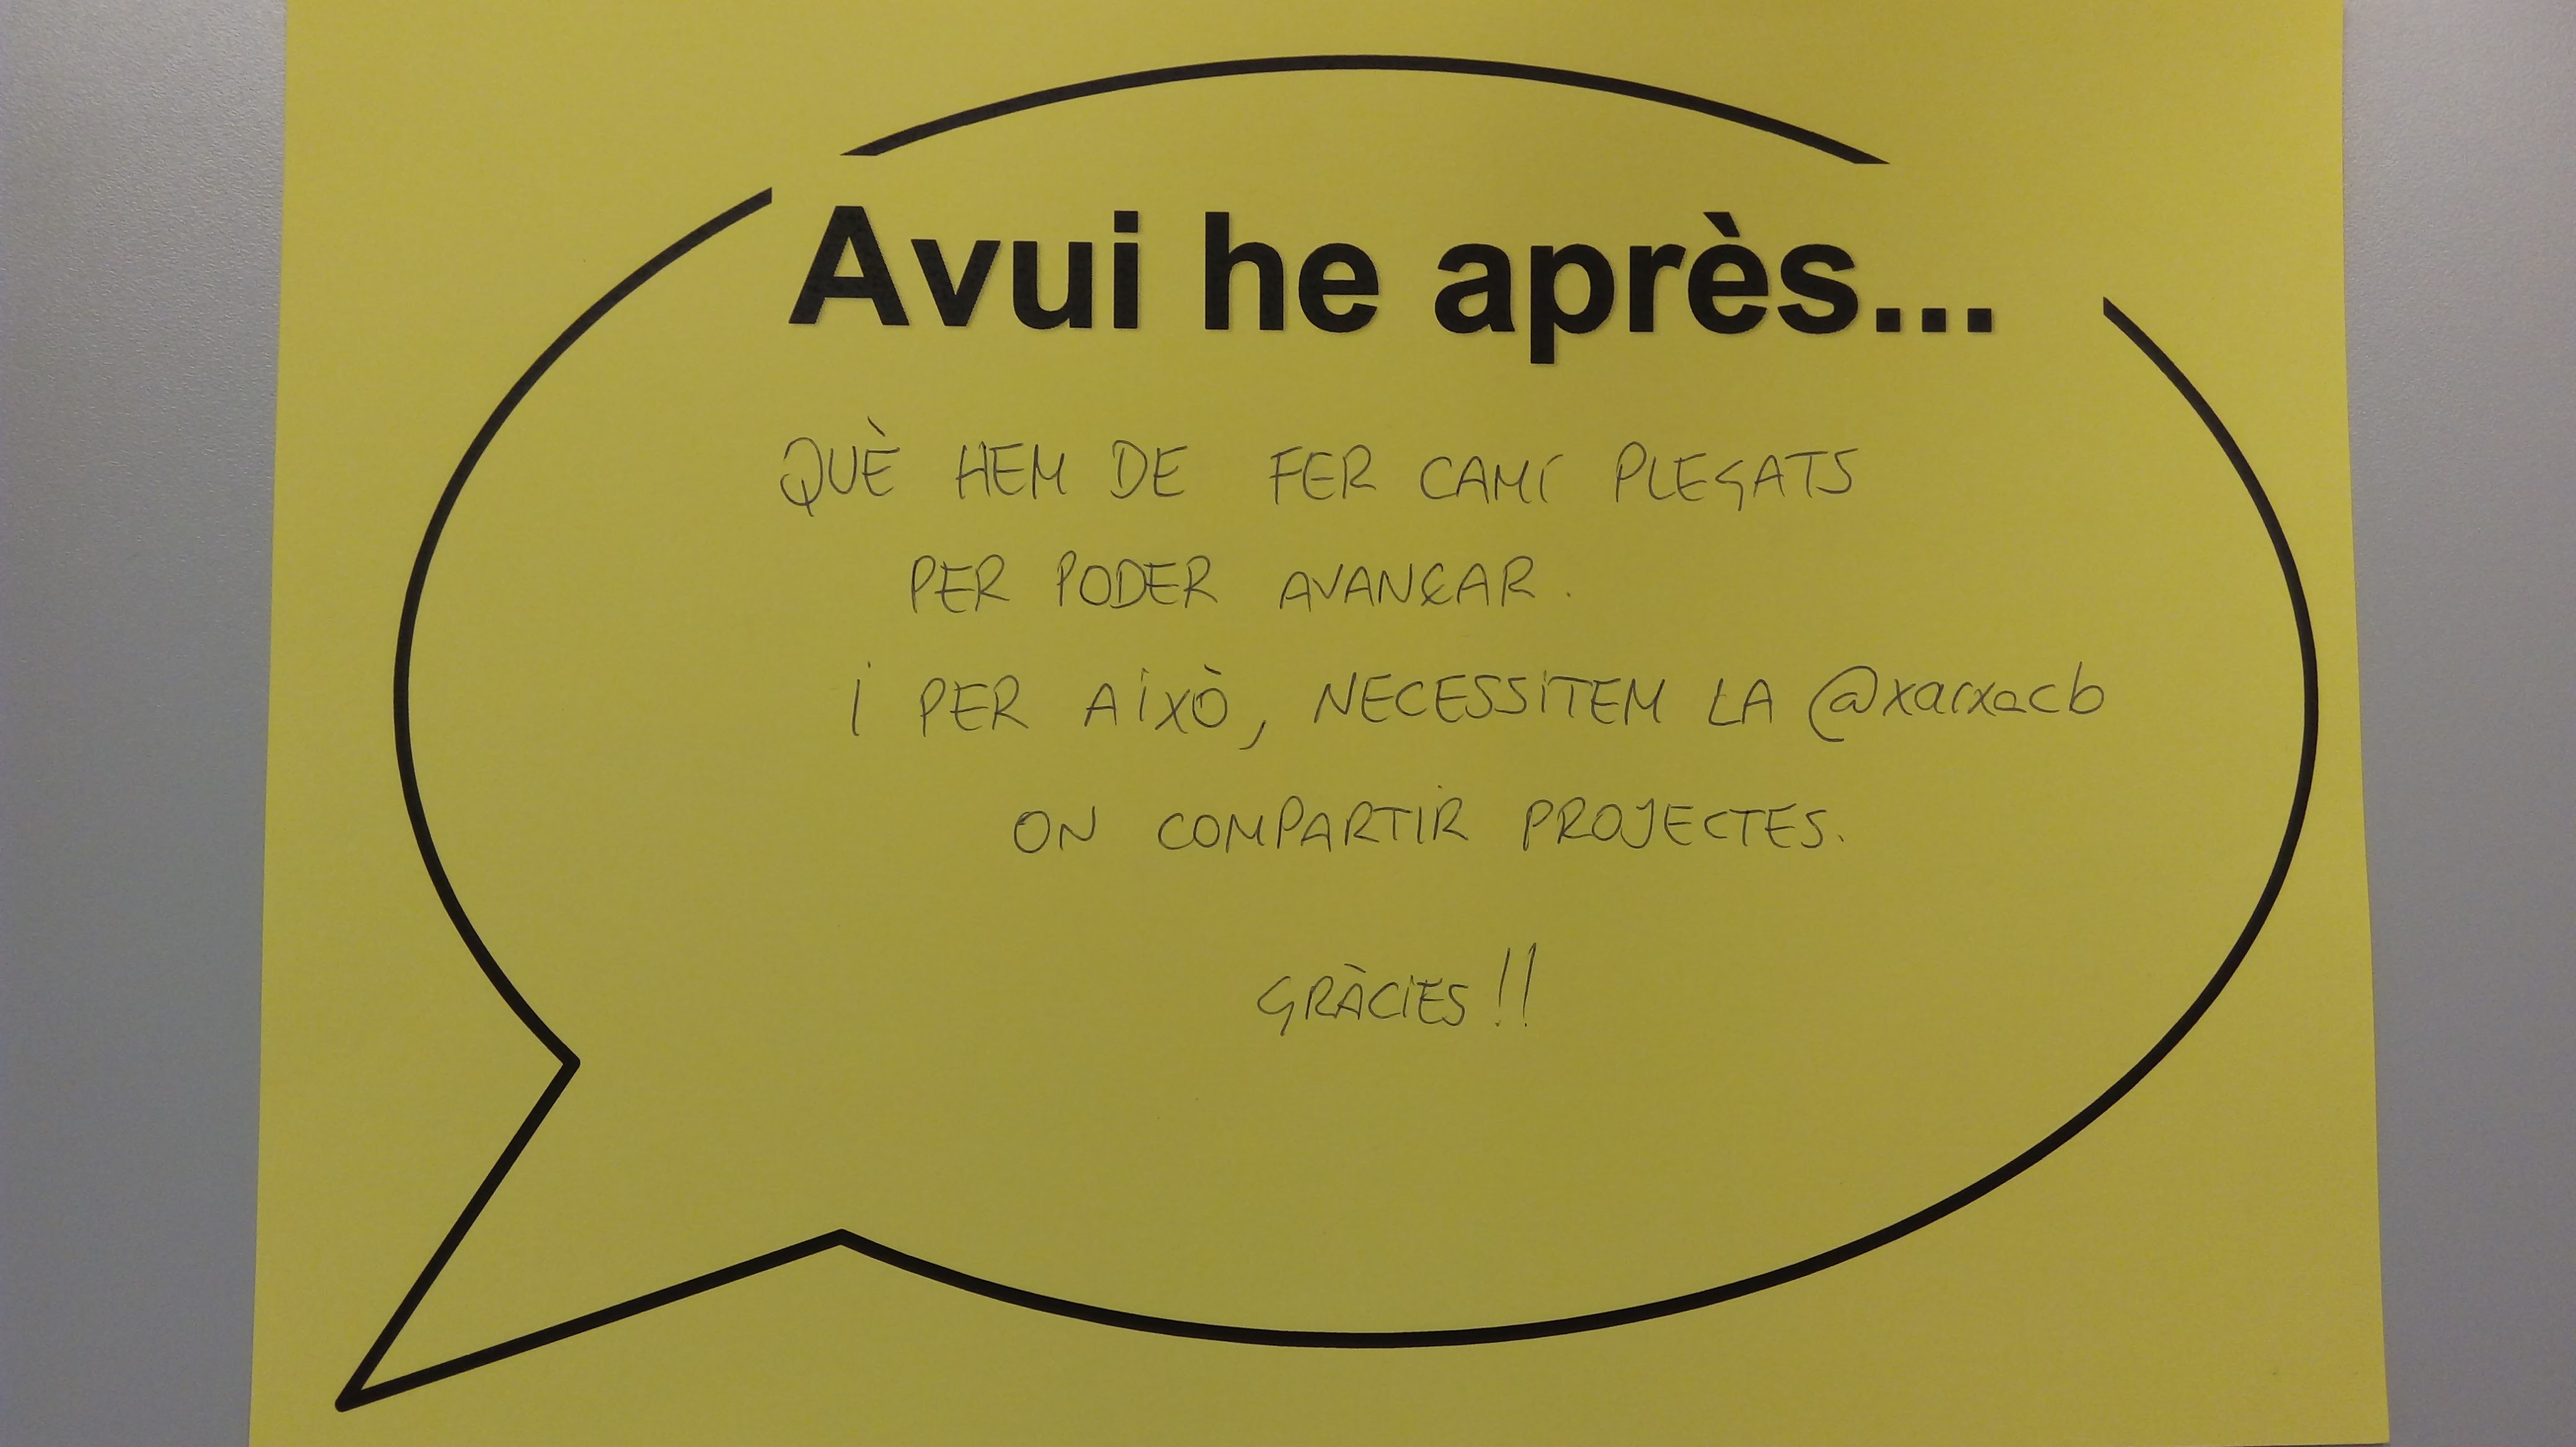 Avui he après...
QUÈ HEM DE FER CAMÍ PLEGATS
PER PODER AVANÇAR.
i PER AiXÒ, NECESSiTEM LA @xarxacb
ON COMPARTIR PROJECTES.
GRÀCiES!!